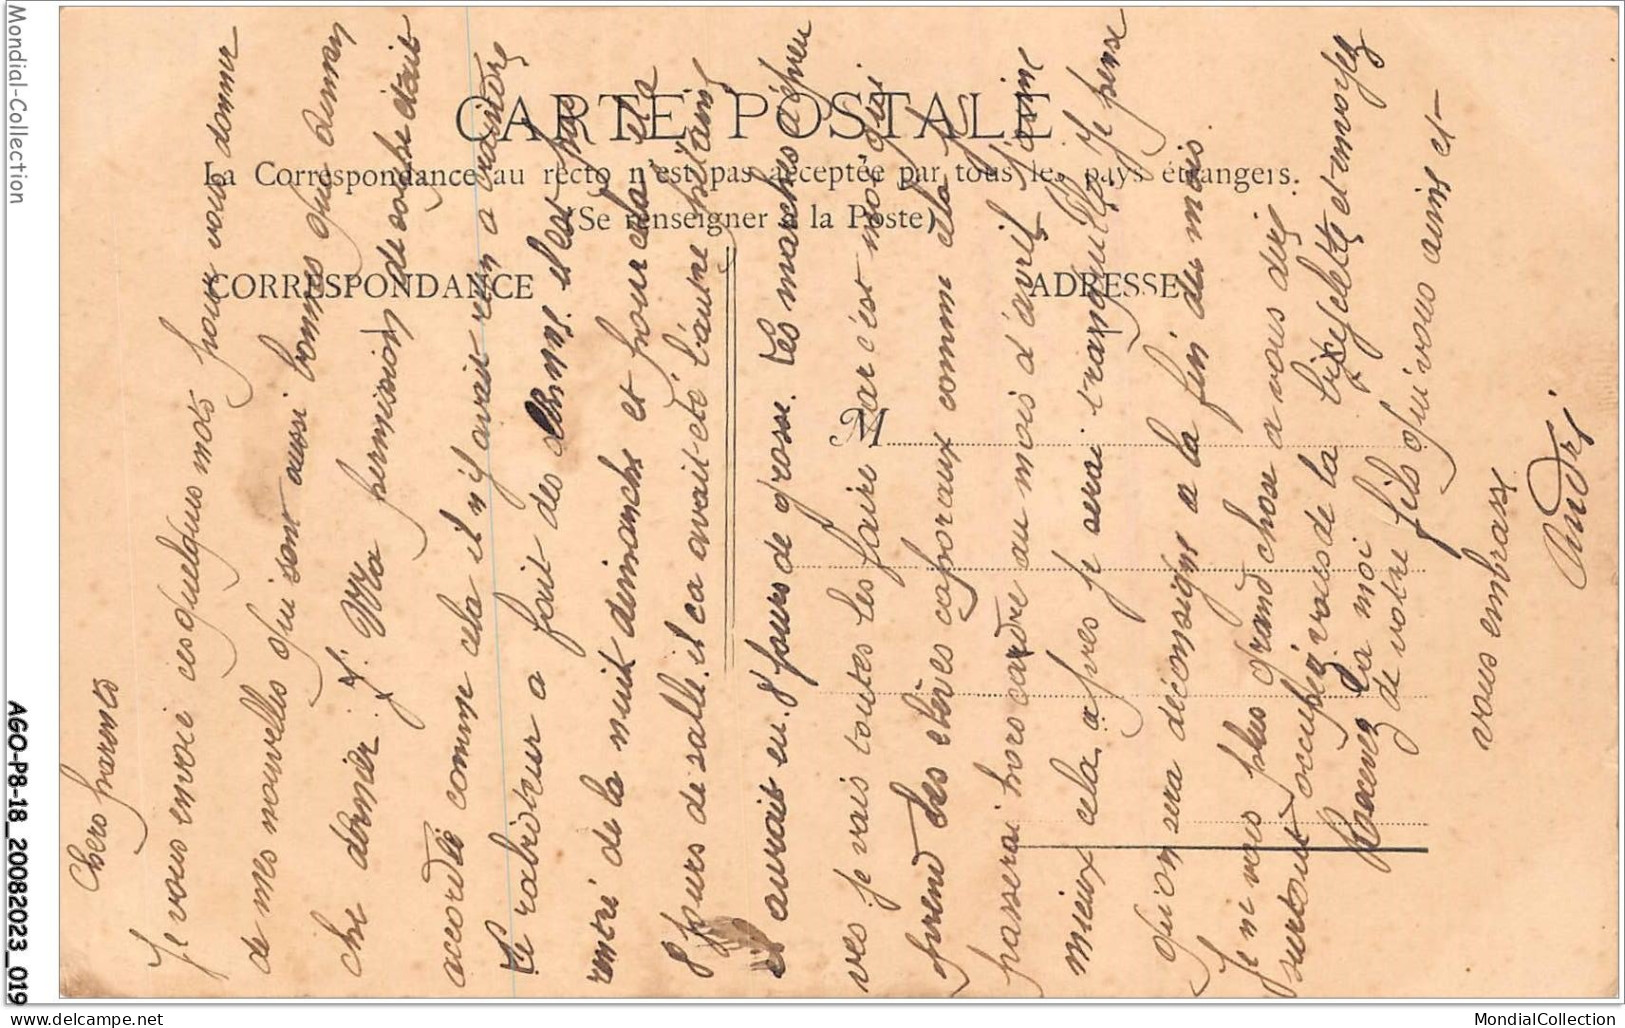 CARTE POSTALE
La Correspondance au recto n'est pas acceptée par tous les pays étrangers.
(Se renseigner à la Poste)
CORRESPONDANCE
ADRESSE
M
Chers parents
Je vous envoie ces quelques mots pour vous donner
de mes nouvelles qui sont aussi bonnes que diman
che dernier. Ma permission de sorte était
accordée comme cela il n'y avait rien a
Le a fait des il est
rentré de la nuit dimanche et pour cela il a
8 jours de salle. il ca avait eté l'autre
il aurait eu 8 jours de grosse. Les marches épreu
ves je vais toutes les faire car c'est moi qui
prend les élèves caporaux comme cela je
passerai hors cadre au mois d'avril j'aime
mieux cela apres je serai tranquille. Je pense
qu'on sera deconsigné a la fin du mois
Je ne vois plus grand chose a vous dire
surtout occupez vous de la et envoyez
la moi
Recevez de votre fils qui vous aime et
vous embrasse
André
Mondial-Collection
AGO-P8-18_20082023_019
delcampe.net
MondialCollection